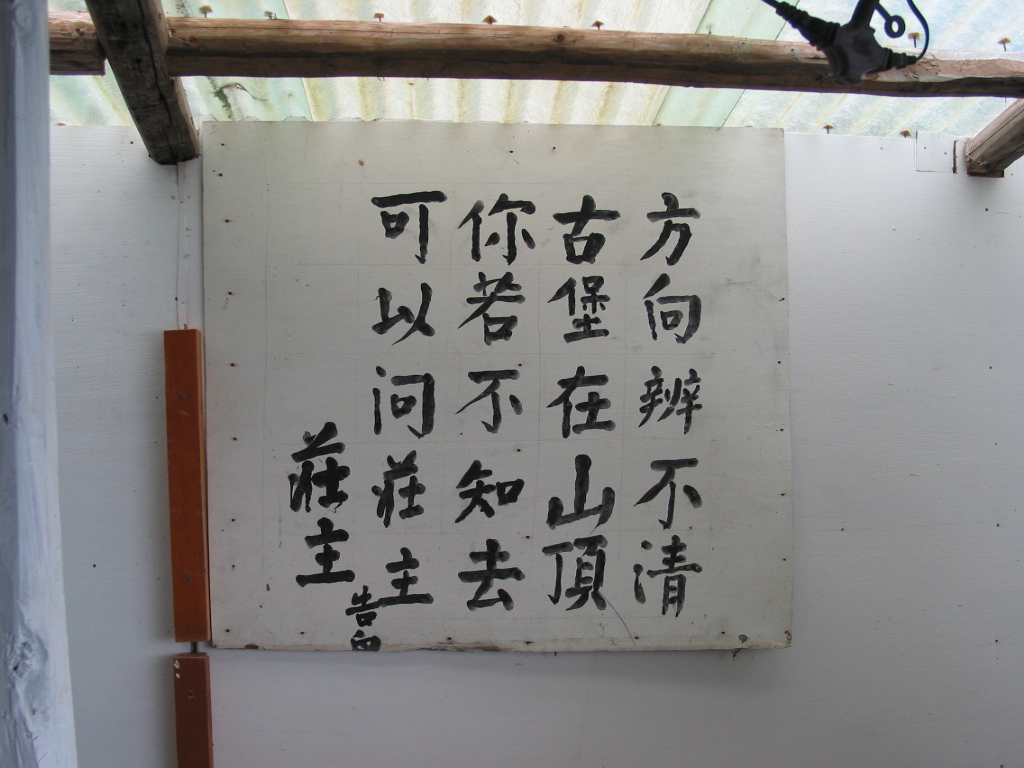 方向辨不清
古堡在山頂
你若不知去
可以问莊主
莊主
告白